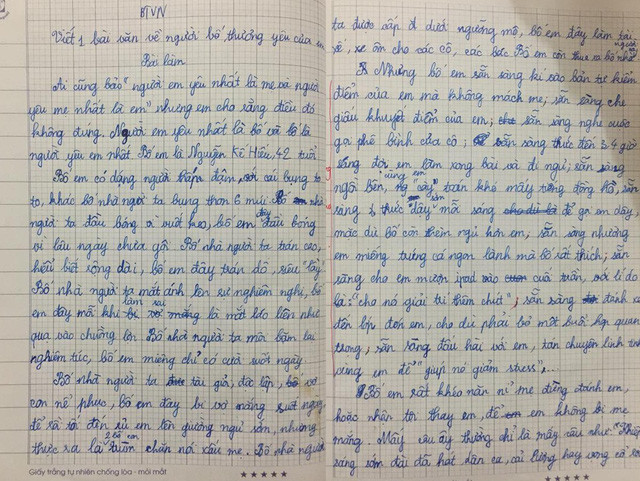 BTVN
Viết 1 bài văn về người bố thương yêu của em
Bài làm
Ai cũng bảo "người em yêu nhất là mẹ và người
yêu mẹ nhất là em" nhưng em cho rằng điều đó
không đúng. Người em yêu nhất là bố và bố là
người yêu em nhất. Bố em là Nguyễn Kế Hiếu, 42 tuổi
Bố em có dáng người đậm, với cái bụng to
to, khác bố nhà người ta bụng thon 6 múi. Bố nhà
người ta đầu bóng vì vuốt keo, bố em đây đầu bóng
vì lâu ngày chưa gội. Bố nhà người ta trán cao,
hiểu biết rộng dài, bố em đây trán dô, siêu "lầy"
Bố nhà người ta mắt ánh lên sự nghiêm nghị, bố
em đây mỗi khi làm sai bị vợ mắng là mắt láo liên như
qua vào chuồng lợn. Bố nhà người ta môi bặm lại
nghiêm túc, bố em miệng chỉ có cười suốt ngày
Bố nhà người ta tài giỏi, độc lập, vợ
con nể phục, bố em đây bị vợ mắng suốt ngày,
để rồi tối đến rủ em lên giường ngủ sớm, nhưng
thực ra là 2 bố con trùm chăn nói xấu mẹ. Bố nhà người
ta được cấp ở dưới ngưỡng mộ, bố em đây làm tài
xế xe ôm cho các cô, các bác. Bố em còn thua xa bố nhà người
ta. Nhưng bố em sẵn sàng kí vào bản tự kiểm
điểm của em mà không mách mẹ; sẵn sàng che
giấu khuyết điểm của em; sẵn sàng nghe cuộc
gọi phê bình của cô; sẵn sàng thức đến 3, 4 giờ
sáng đợi em làm xong bài và đi ngủ; sẵn sàng
ngồi bên, cùng em "cày" toán khó mấy tiếng đồng hồ; sẵn
sàng thức dậy sớm mỗi sáng để gọi em dậy,
mặc dù bố còn thèm ngủ hơn em, sẵn sàng nhường
em miếng trứng cá ngon lành mà bố rất thích; sẵn
sàng cho em mượn ipad vào cuối tuần, với lí do
là: "cho nó giải trí thêm chút"; sẵn sàng đánh xe
đến lớp đón em, cho dù phải bỏ một buổi họp quan
trọng; sẵn sàng đầu hài với em, tán chuyện linh tinh
cùng em để "giúp nó giảm stress",...
Bố em rất khéo năn nỉ mẹ đừng đánh em,
hoặc nhận tội thay em, để em không bị mẹ
mắng. Mấy câu ấy thường chỉ là mấy câu như:
sáng sớm đài đã hát dân ca, cải lương hay vọng cổ
Giấy trắng tự nhiên chống lóa - mỏi mắt